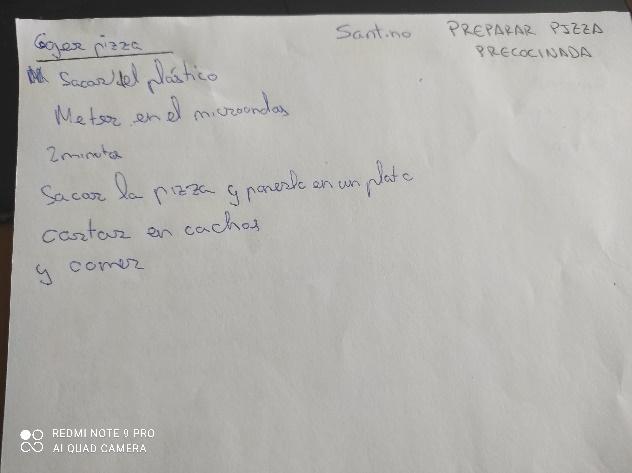 Santino PREPARAR PIZZA
PRECOCINADA
Coger pizza
Sacar del plástico
Meter en el microondas
2 minutos
Sacar la pizza y ponerla en un plato
cortar en cachos
y comer
REDMI NOTE 9 PRO
AI QUAD CAMERA